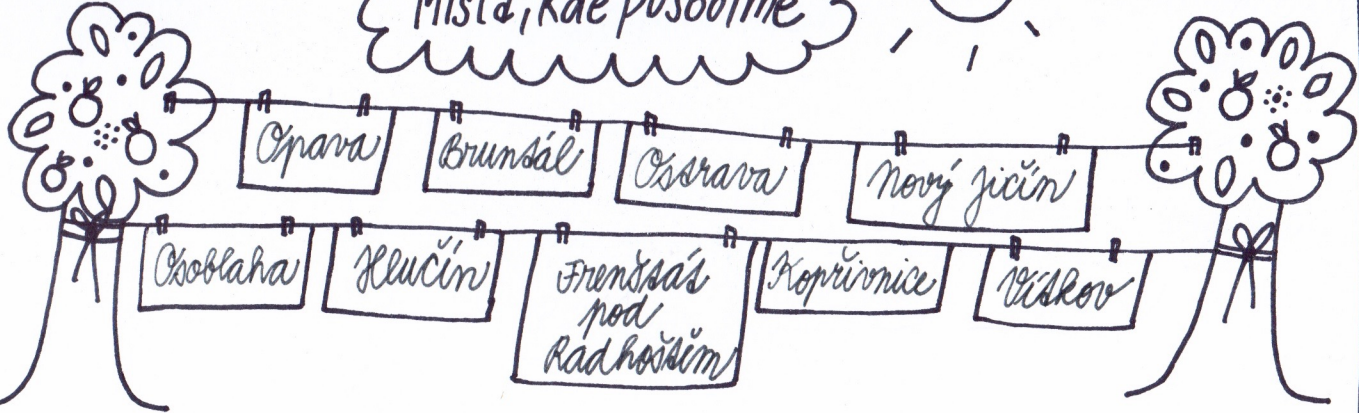 Místa, kde působíme
Opava
Bruntál
Ostrava
Nový Jičín
Osoblaha
Hlučín
Frenštát
pod
Radhoštěm
Kopřivnice
Vítkov